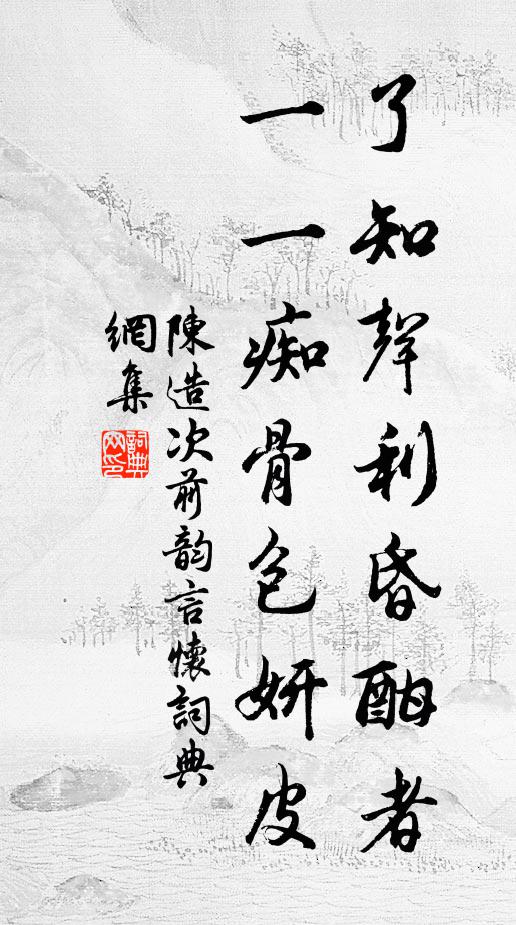 了知聲利昏酣者
一一痴骨包妍皮
陳造次前韵言懷詞典
網集
詞典網印